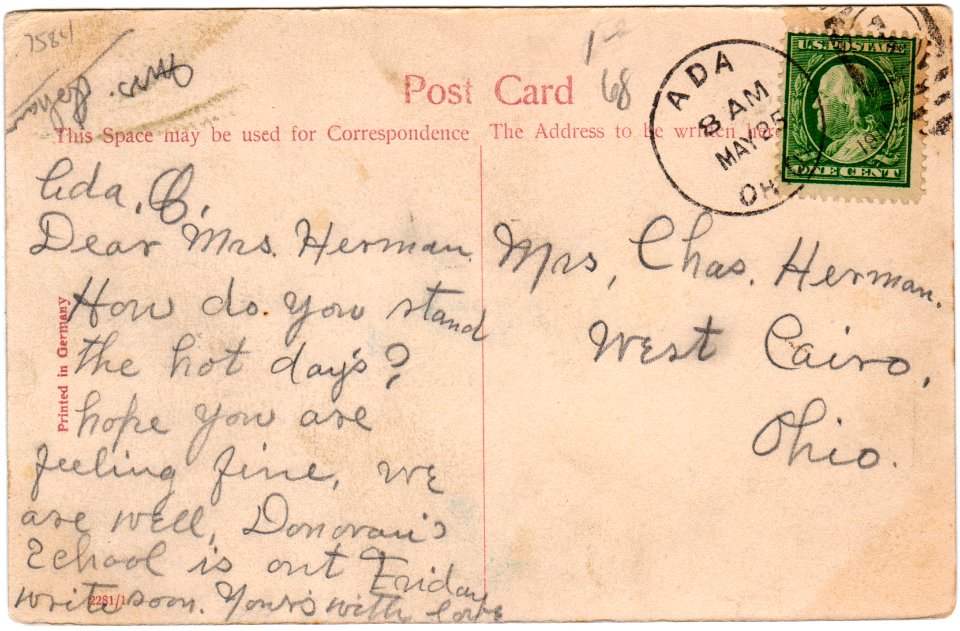 7584
Mrs.
1-
68
Post Card
This Space may be used for Correspondence
The Address to be written here
ADA
8 AM
MAY 25
OHIO
19
U.S. POSTAGE
ONE CENT
Ada, O,
Dear Mrs. Herman.
How do you stand
the hot day's?
hope you are
feeling fine, we
are well, Donovan's
School is out Friday
write soon. Your's with love
Printed in Germany
2281/1
Mrs, Chas. Herman.
West Cairo,
Ohio.